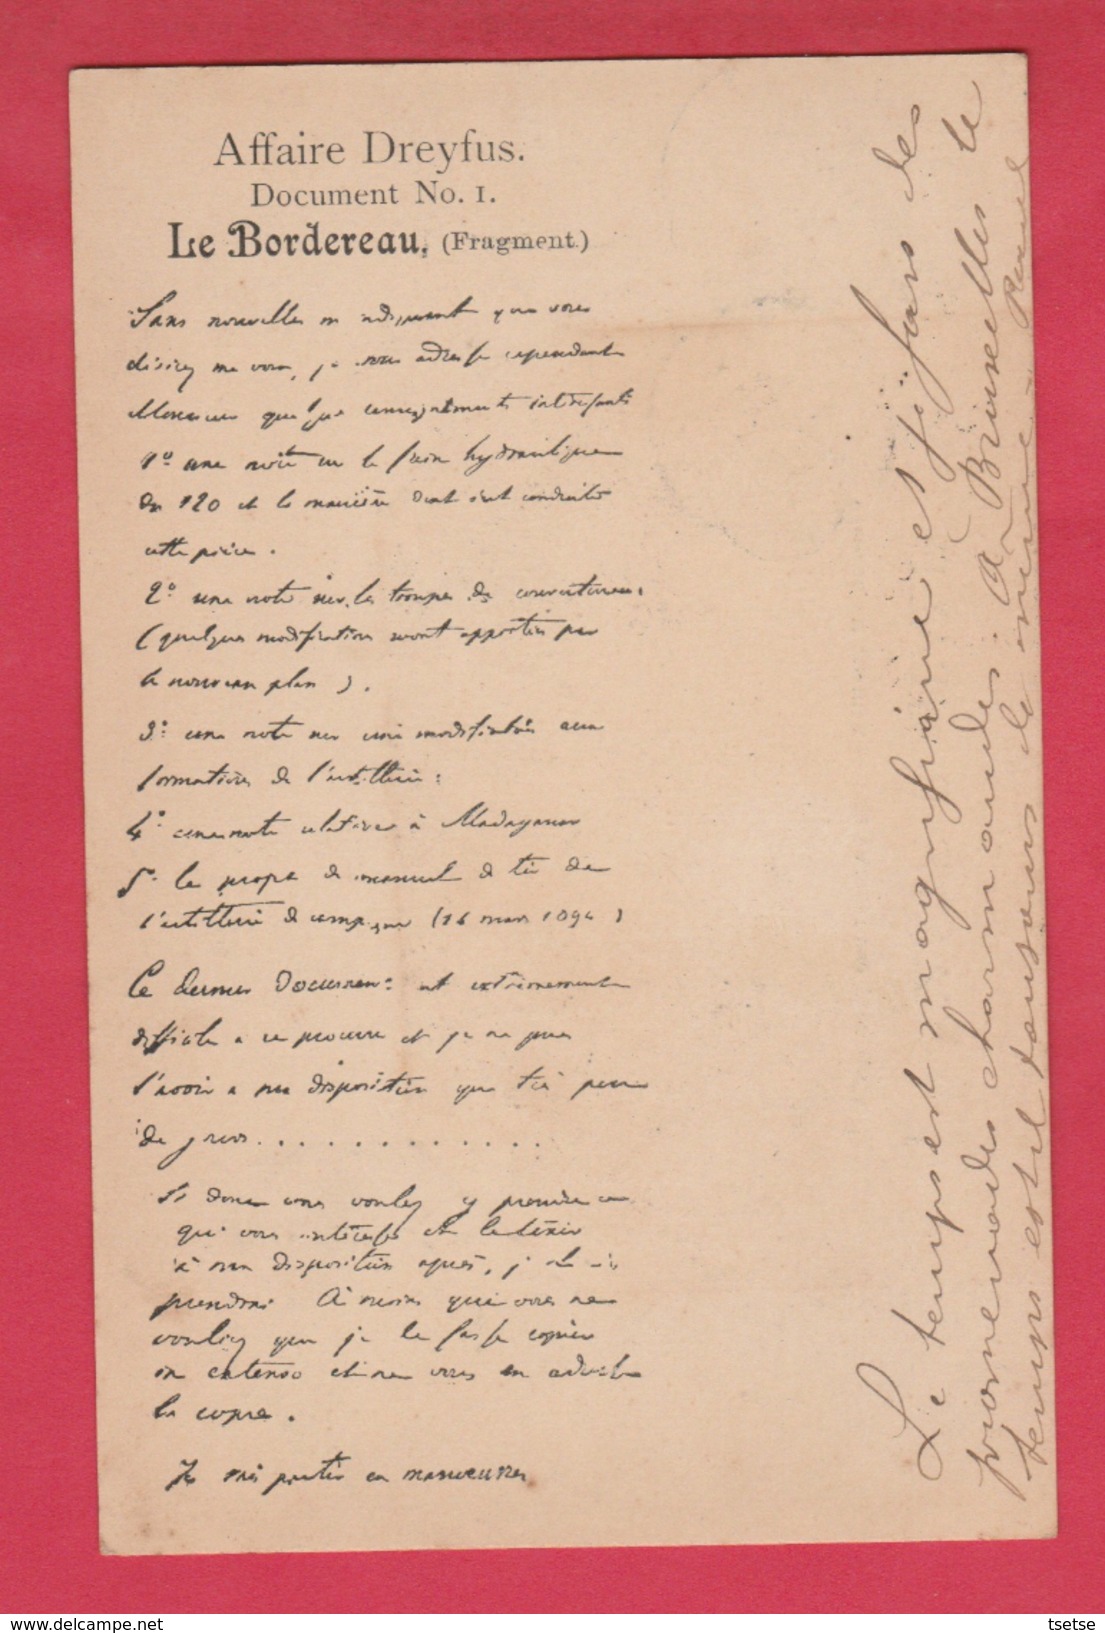 Affaire Dreyfus.
Document No. 1.
Le Bordereau, (Fragment.)
Sans nouvelles m'indiquant que vous
désirez me voir, je vous adresse cependant
Monsieur quelques renseignements intéressants
1º une note sur le frein hydraulique
du 120 et la manière dont s'est conduite
cette pièce.
2º une note sur les troupes de couverture.
(quelques modifications seront apportées par
le nouveau plan).
3º une note sur une modification aux
formations de l'artillerie:
4º une note relative à Madagascar
5º le projet de manuel de tir de
l'artillerie de campagne (14 mars 1894)
Ce dernier document est extrêmement
difficile à se procurer et je ne puis
l'avoir à ma disposition que très peu
de jours............
Si donc vous voulez y prendre ce
qui vous intéresse et le tenir
à ma disposition après, je le
prendrai. A moins que vous ne
vouliez que je le fasse copier
in extenso et ne vous en adresse
la copie.
Je vais partir en manœuvres
Le temps est magnifique et j'y fais des
promenades charmandes. a Bruxelles le
temps est il toujours le même?
tsetse